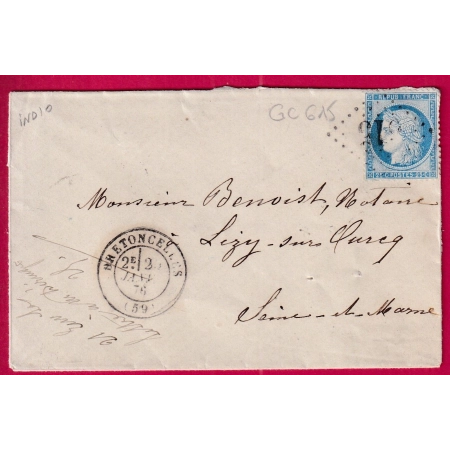 INDIO
GC 615
REPUB FRANC
25 C POSTES 25 C
Monsieur Benoist, Notaire
Lizy-sur-Ourcq
Seine-et-Marne
BRETONCELLES
2E 2
JANV
76
(59)
21